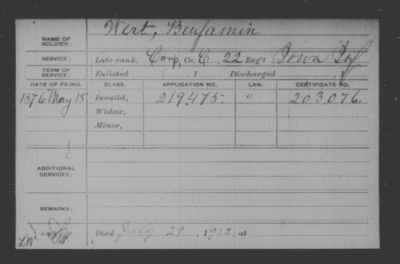 NAME OF SOLDIER: Wert, Benjamin
SERVICE: Late rank, Corp, Co. C, 22 Reg't Iowa Inf
TERM OF SERVICE: Enlisted , 1 Discharged , 1
DATE OF FILING. CLASS. APPLICATION NO. LAW. CERTIFICATE NO.
1876 May 18 Invalid, 219475. 203076.
Widow,
Minor,
ADDITIONAL SERVICES:
REMARKS:
Died July 29, 1912, at